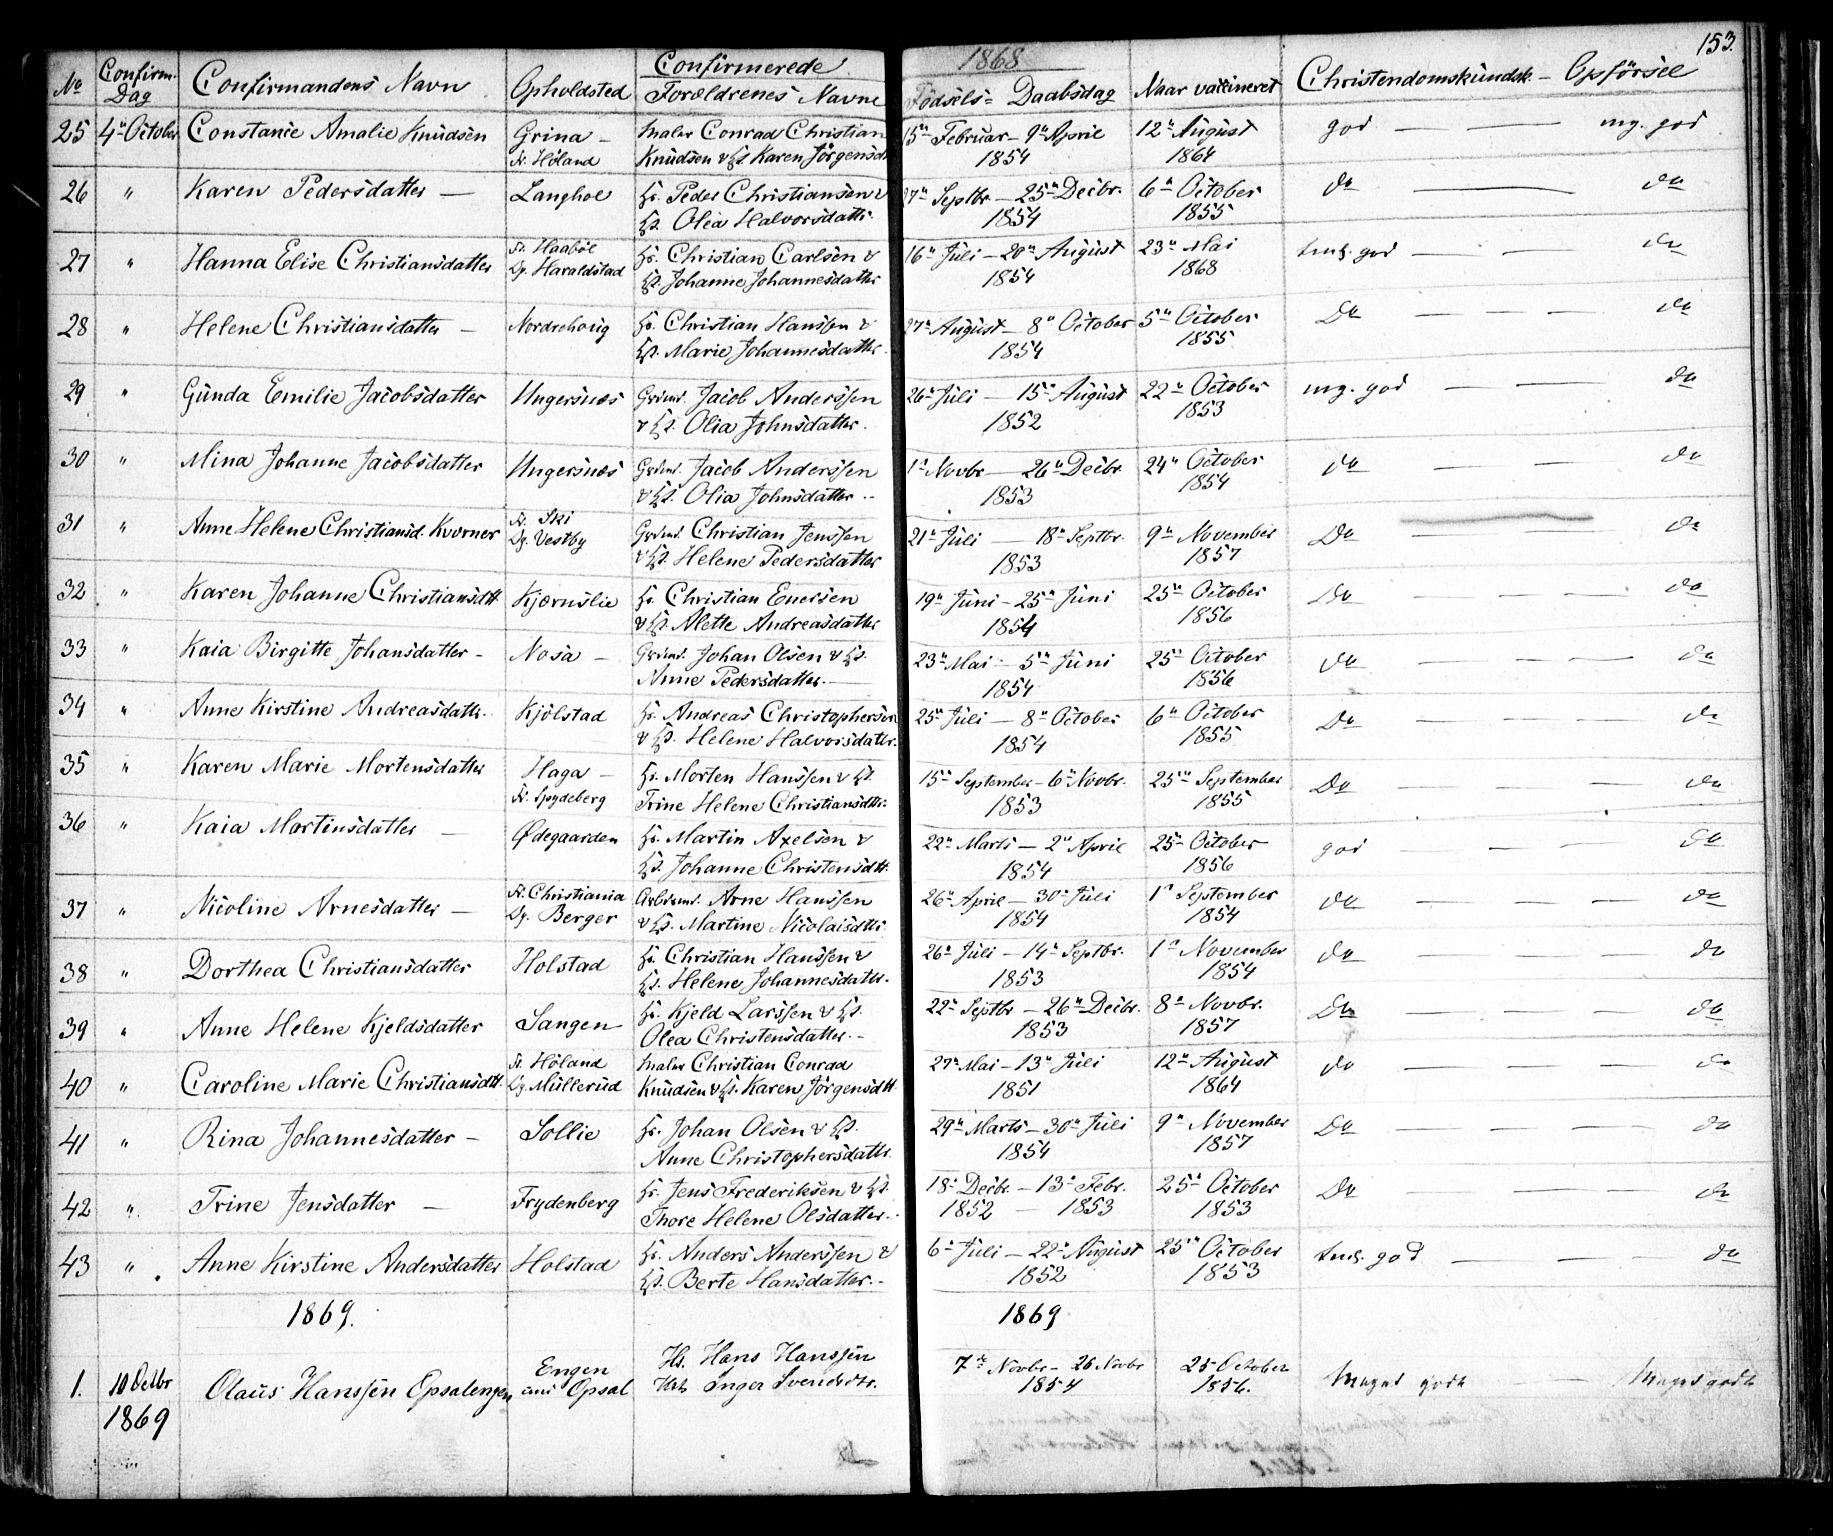 153.
Confirmerede 1868
No Confirm. Dag Confirmandens Navn Opholdsted Forældrenes Navne Fødsels= Daabsdag Naar vaccineret Christendomskundsk. — Opførsel
25 4de October Constance Amalie Knudsen Grina — Maler Conrad Christian 15de Februar — 9de April 12te August god — — mg. god
Fr. Höland Knudsen & H. Karen Jörgensd. 1854 1864
26 " Karen Pedersdatter — Langhol Hr. Peder Christiansen & 27de Septbr. — 25de Decbr. 6te October do — do
H. Olea Halvorsdattr. 1854 1855
27 " Hanna Elise Christiansdatter Fr. Haabøl Hr. Christian Carlsen & 16de Juli — 20de August 23de Mai tml. god — — do
Dg. Haraldstad H. Johanne Johannesdatter 1854 1868
28 " Helene Christiansdatter — Nordrehoug Hr. Christian Hanssen & 27de August — 8de October 5te October Do — — — do
H. Marie Johannesdatter. 1854 1855
29 " Gunda Emilie Jacobsdatter Ungersnæs Grdmd. Jacob Anderssen 26de Juli — 15de August 22de October mg. god — — — do
& H. Olia Johnsdatter. 1852 1853
30 " Mina Johanne Jacobsdatter Ungersnæs Grdmd. Jacob Anderssen 1ste Novbr. — 26de Decbr. 24de October do — — — do
& H. Olia Johnsdatter. — 1853 1854
31 " Anne Helene Christiansd. Kværner Fr. Ski Grdmd. Christian Jenssen 21de Juli — 18de Septbr. 9de November Do — do
Dg. Vestby & H. Helene Pedersdatter 1853 1857
32 " Karen Johanne Christiansdtt. Kjærnslie Hr. Christian Enersen 19de Juni — 25de Juni 25de October Do — — — — do
& H. Alette Andreasdatter 1854 1856
33 " Kaia Birgitte Johansdatter — Nosa — Grdmd. Johan Olsen & H. 23de Mai — 5te Juni 25de October do — — — do
Anne Pedersdatter. — 1854 1856
34 " Anne Kirstine Andreasdattr. Kjölstad Hr. Andreas Christophersen 25de Juli — 8de October 6te October Do — — — — do
& H. Helene Halvorsdattr. 1854 1855
35 " Karen Marie Mortensdatter Haga — Hr. Morten Hanssen & H. 15de September — 6te Novbr. 25de September Do — — — — do
Fr. Spydeberg Trine Helene Christiansdttr. 1853 1855
36 " Kaia Martinsdatter — Ødegaarden Hr. Martin Axelsen & 22de Marts — 2den April 25de October god — — — do
H. Johanne Christensdtt. 1854 1856
37 " Nicoline Arnesdatter — Fr. Christiania Arbdsmd. Arne Hanssen 26de April — 30de Juli 1ste September do — — — — do
Dg. Berger & H. Martine Nicolaisdttr. 1854 1854
38 " Dorthea Christiansdatter Holstad Hr. Christian Hanssen & 26de Juli — 14de Septbr. 1ste November do — — — — do
H. Helene Johannesdattr. 1853 1854
39 " Anne Helene Kjeldsdatter Sangen Hr. Kjeld Larssen & H. 22de Septbr — 26de Decbr. 8de Novbr. Do — — — — do
Olea Christensdatter. — 1853 1857
40 " Caroline Marie Christiansdtt. Fr. Höland Maler Christian Conrad 27de Mai — 13de Juli 12te August do — — — — do
Dg. Müllerud Knudsen & H. Karen Jörgensdtt. 1851 1864
41 " Rina Johannesdatter — Sollie Hr. Johan Olsen & H. 29de Marts — 30de Juli 9de November Do — — — — do
Anne Christophersdattr. 1854 1857
42 " Trine Jensdatter — Frydenberg Hr. Jens Frederiksen & H. 18de Decbr. — 13de Febr. 25de October Do — — — — do
Thore Helene Olsdatter. 1852 — 1853 1853
43 " Anne Kirstine Andersdatter Holstad Hr. Anders Anderssen & 6te Juli — 22de August 25de October tml. god — — — do
H. Berte Hansdatter. — 1852 1853
1869. 1869
1. 10 Octbr 1869 Olaus Hanssen Opsalengen Engen Hs. Hans Hanssen 7de Novbr — 26 Novbr 25 October Meget godt — — Meget godt
Opsal Inger 1854 1856.